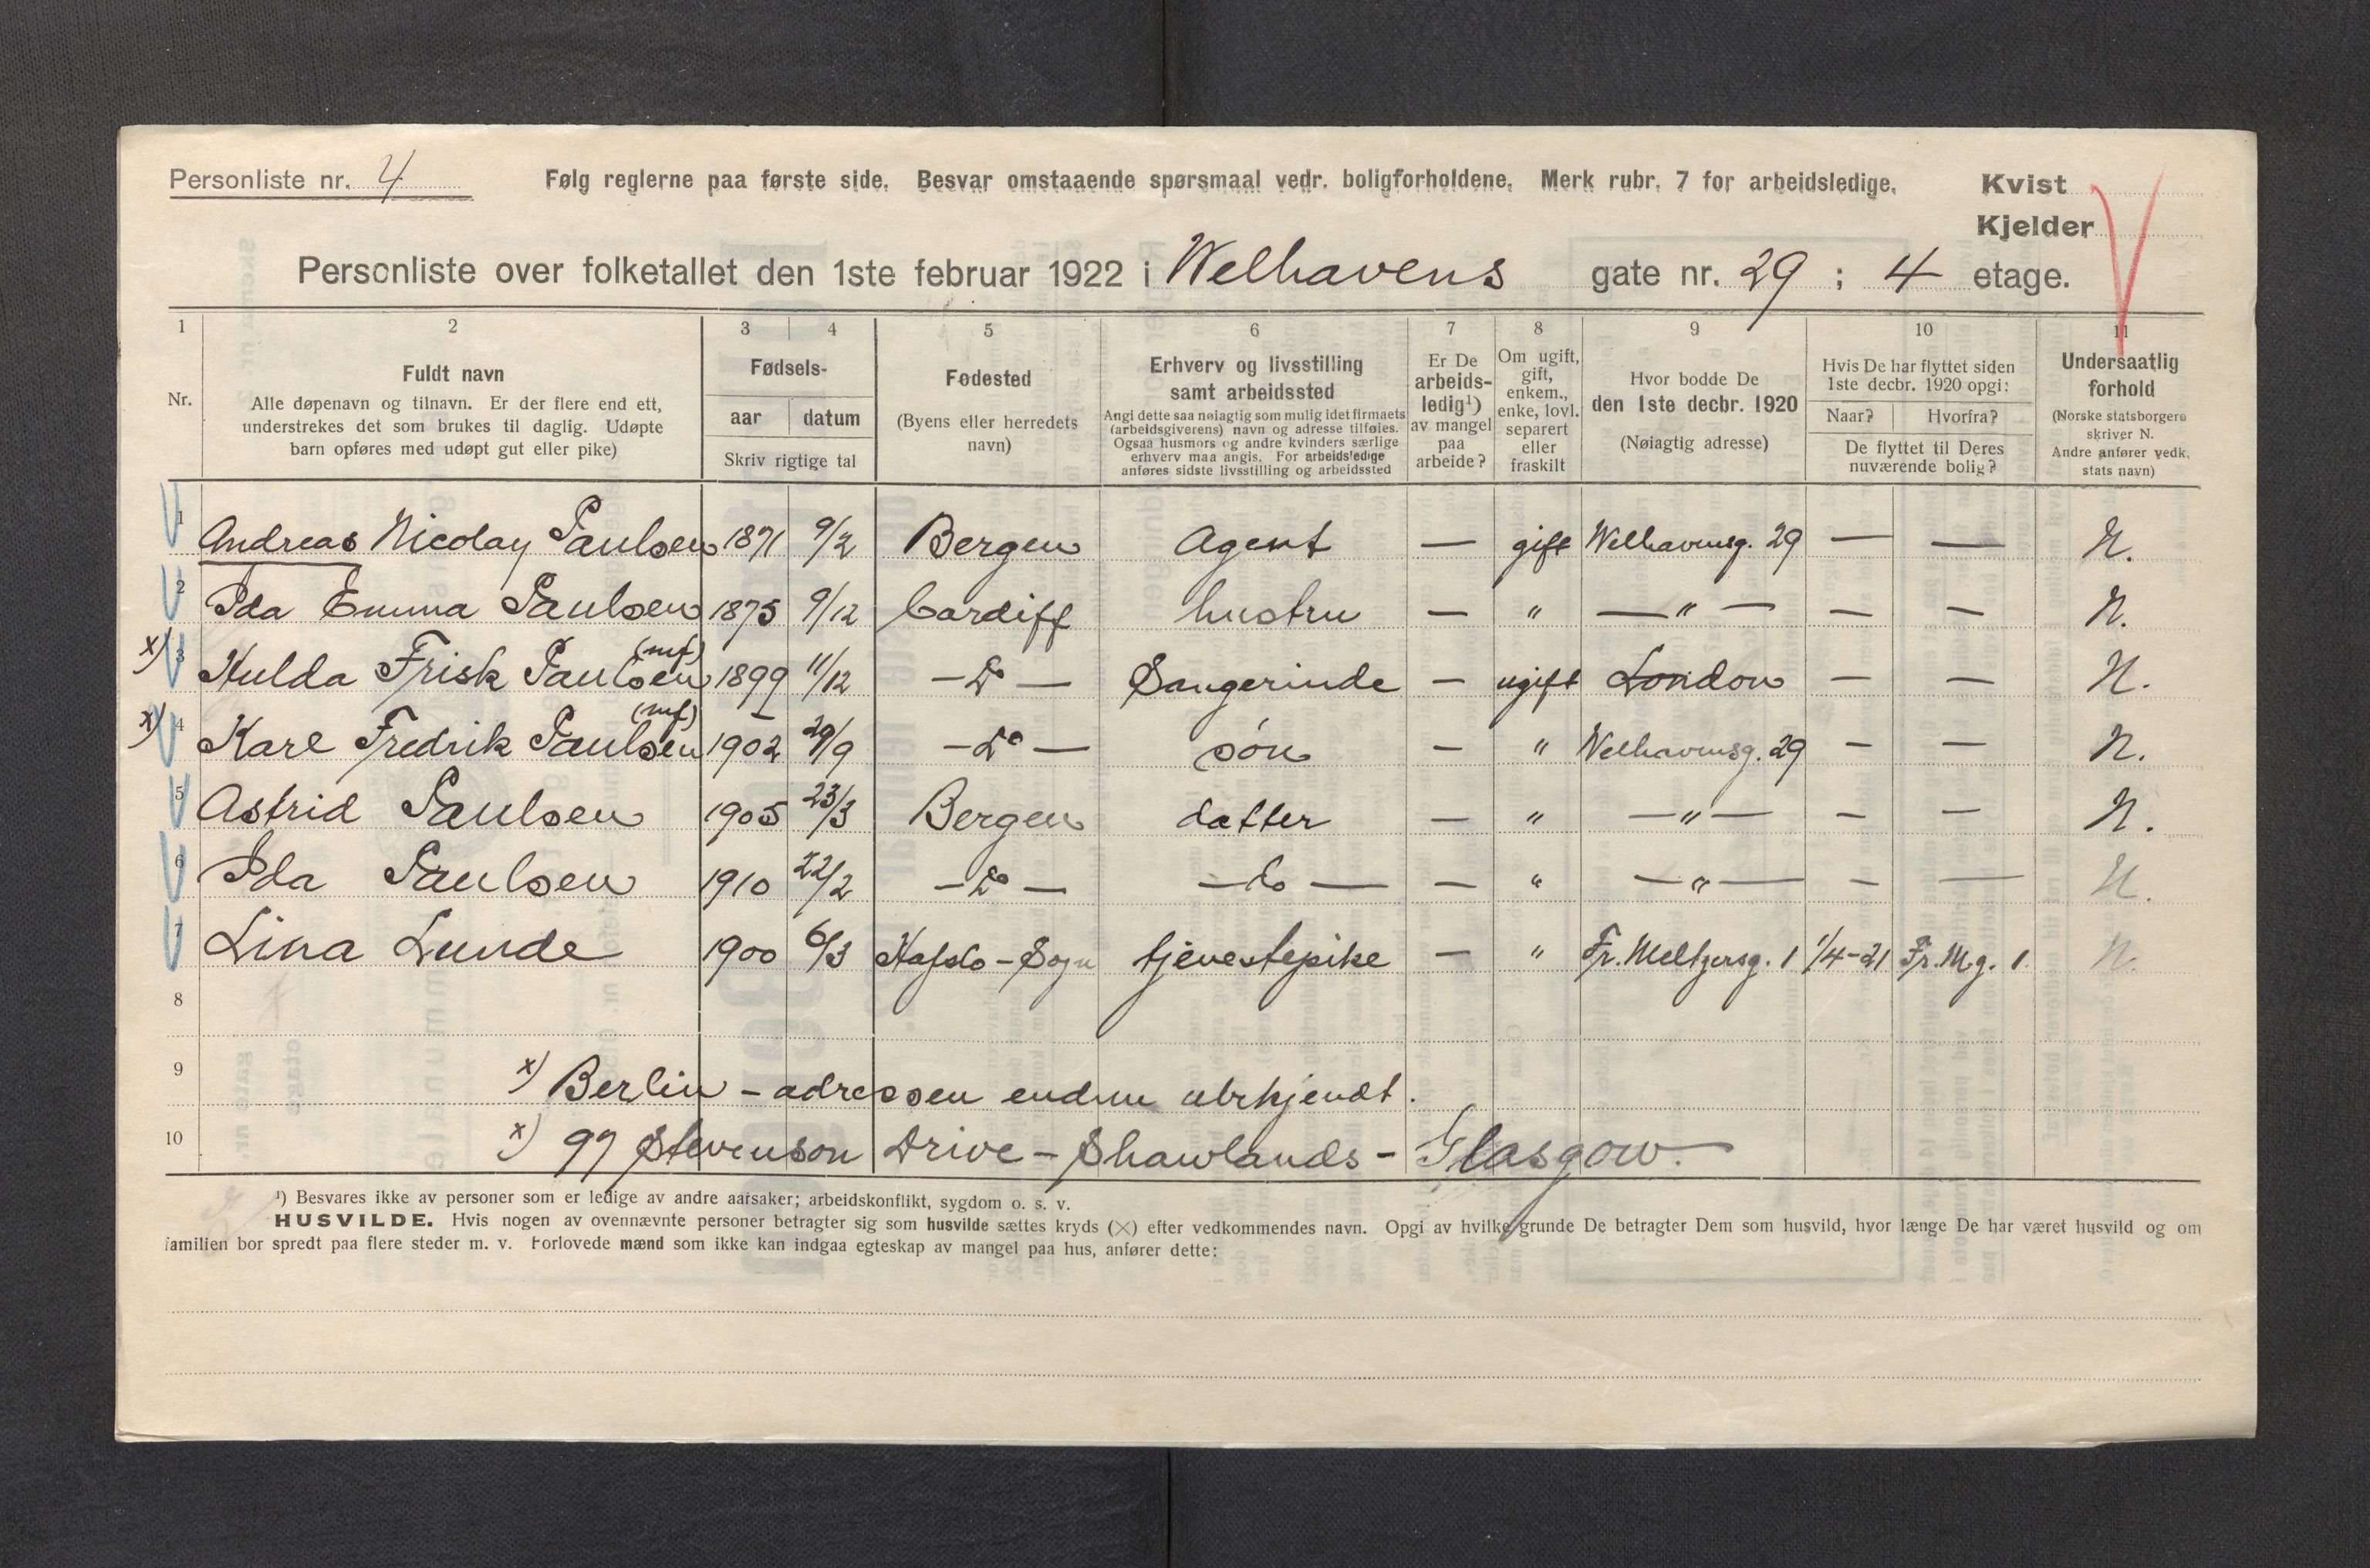 Personliste nr. 4 Følg reglerne paa første side. Besvar omstaaende spørsmaal vedr. boligforholdene. Merk rubr. 7 for arbeidsledige. Kvist
Kjelder
Personliste over folketallet den 1ste februar 1922 i Welhavens gate nr. 29 ; 4 etage.
1 2 3 4 5 6 7 8 9 10 11
Nr.
Fuldt navn
Alle døpenavn og tilnavn. Er der flere end ett,
understrekes det som brukes til daglig. Udøpte
barn opføres med udøpt gut eller pike)
Fødsels-
aar datum
Skriv rigtige tal
Fodested
(Byens eller herredets
navn)
Erhverv og livsstilling
samt arbeidssted
Angi dette saa nøiagtig som mulig idet firmaets
(arbeidsgiverens) navn og adresse tilføies.
Ogsaa husmors og andre kvinders særlige
erhverv maa angis. For arbeidsledige
anføres sidste livsstilling og arbeidssted
Er De
arbeids-
ledig¹)
av mangel
paa
arbeide?
Om ugift,
gift,
enkem.,
enke, lovl.
separert
eller
fraskilt
Hvor bodde De
den 1ste decbr. 1920
(Nøiagtig adresse)
Hvis De har flyttet siden
1ste decbr. 1920 opgi:
Naar? Hvorfra?
De flyttet til Deres
nuværende bolig?
Undersaatlig
forhold
(Norske statsborgere
skriver N.
Andre anfører vedk.
stats navn)
1 Andreas Nicolay Paulsen 1871 9/2 Bergen Agent — gift Welhavensg. 29 — — N.
2 Ida Emma Paulsen 1875 9/12 Cardiff hustru — " — " — — — N.
x) 3 Hulda Frisk Paulsen (mf) 1899 11/12 — Do — Sangerinde — ugift London — — N.
x) 4 Karl Fredrik Paulsen (mf) 1902 29/9 — Do — søn — " Welhavensg. 29 — — N.
5 Astrid Paulsen 1905 23/3 Bergen datter — " — " — — — N.
6 Ida Paulsen 1910 22/2 — Do — — do — — " — " — — — N.
7 Lina Lunde 1900 6/3 Hafslo - Sogn tjenestepike — " Fr. Meltzersg. 1 1/4-21 Fr. M.g. 1 N.
8
9 x) Berlin - adressen endnu ubekjendt.
10 x) 97 Stevenson Drive - Shawlands - Glasgow.
¹) Besvares ikke av personer som er ledige av andre aarsaker; arbeidskonflikt, sygdom o. s. v.
HUSVILDE. Hvis nogen av ovennævnte personer betragter sig som husvilde sættes kryds (×) efter vedkommendes navn. Opgi av hvilke grunde De betragter Dem som husvild, hvor længe De har været husvild og om
familien bor spredt paa flere steder m. v. Forlovede mænd som ikke kan indgaa egteskap av mangel paa hus, anfører dette: